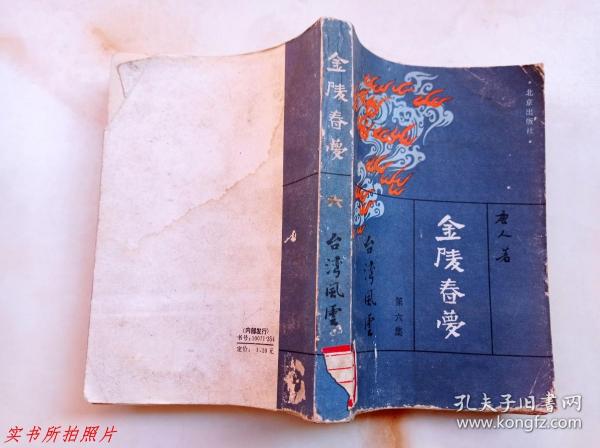 金陵春夢
六
台灣風雲
北京出版社
唐人著
金陵春夢
台灣風雲
第六集
(内部发行)
书号:10071·254
定价: 1.10元
实书所拍照片
孔夫子旧书网